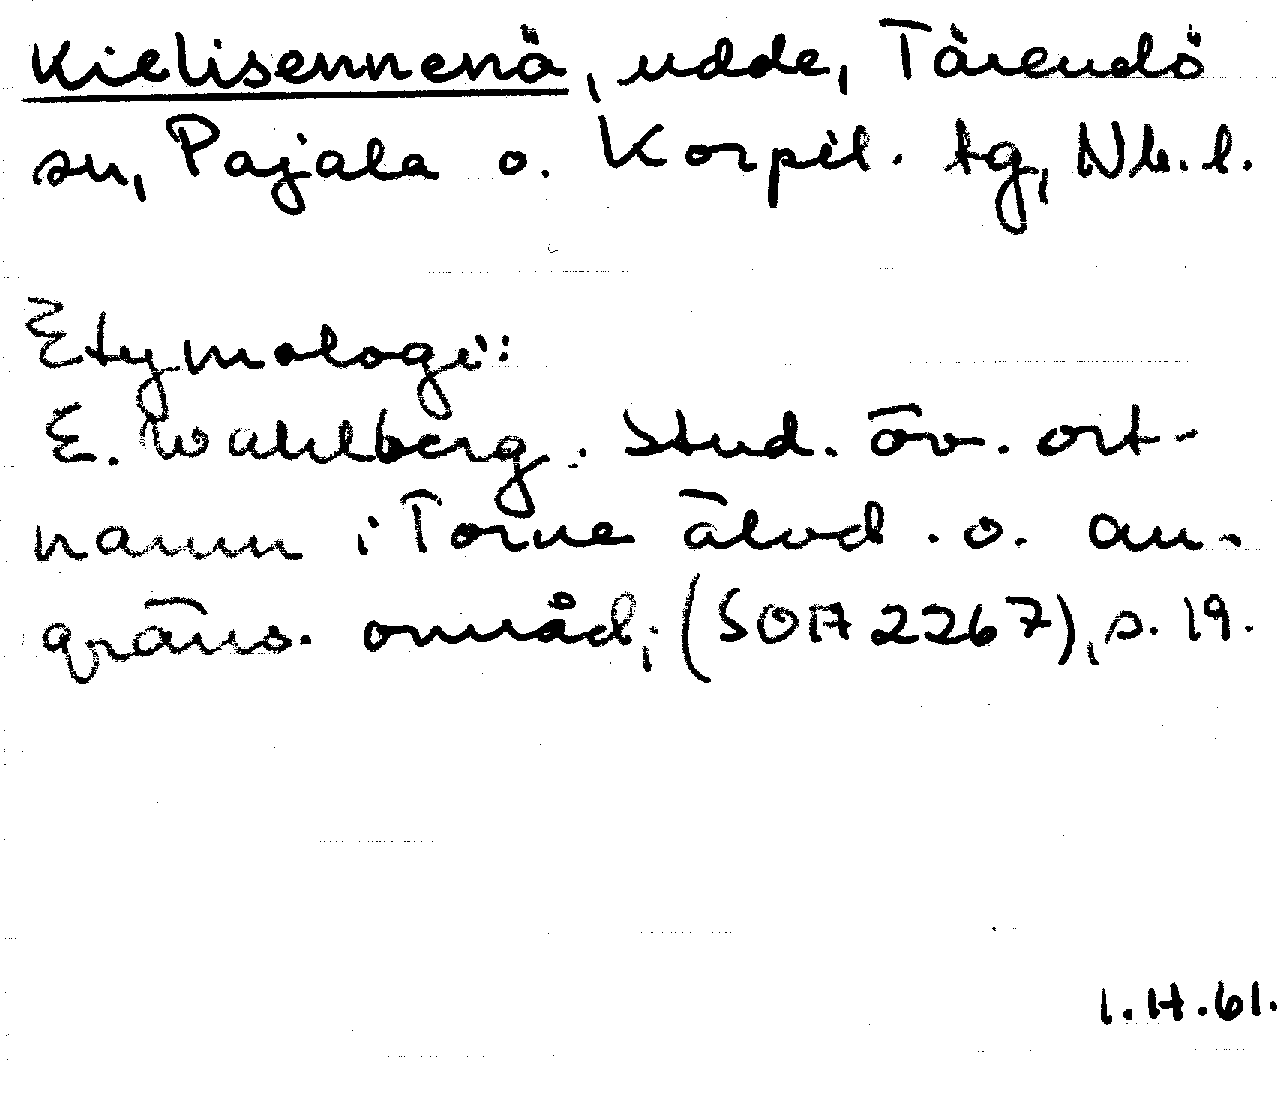 Kielisennenä, udde, Tärendö
sn, Pajala o. Korpil. tg, Nb. l.
Etymologi:
E. Wahlberg. Stud. öv. ort-
namn i Torne älvd. o. an-
gräns. områd; (SOA 2267), s. 19.
1.H.61.